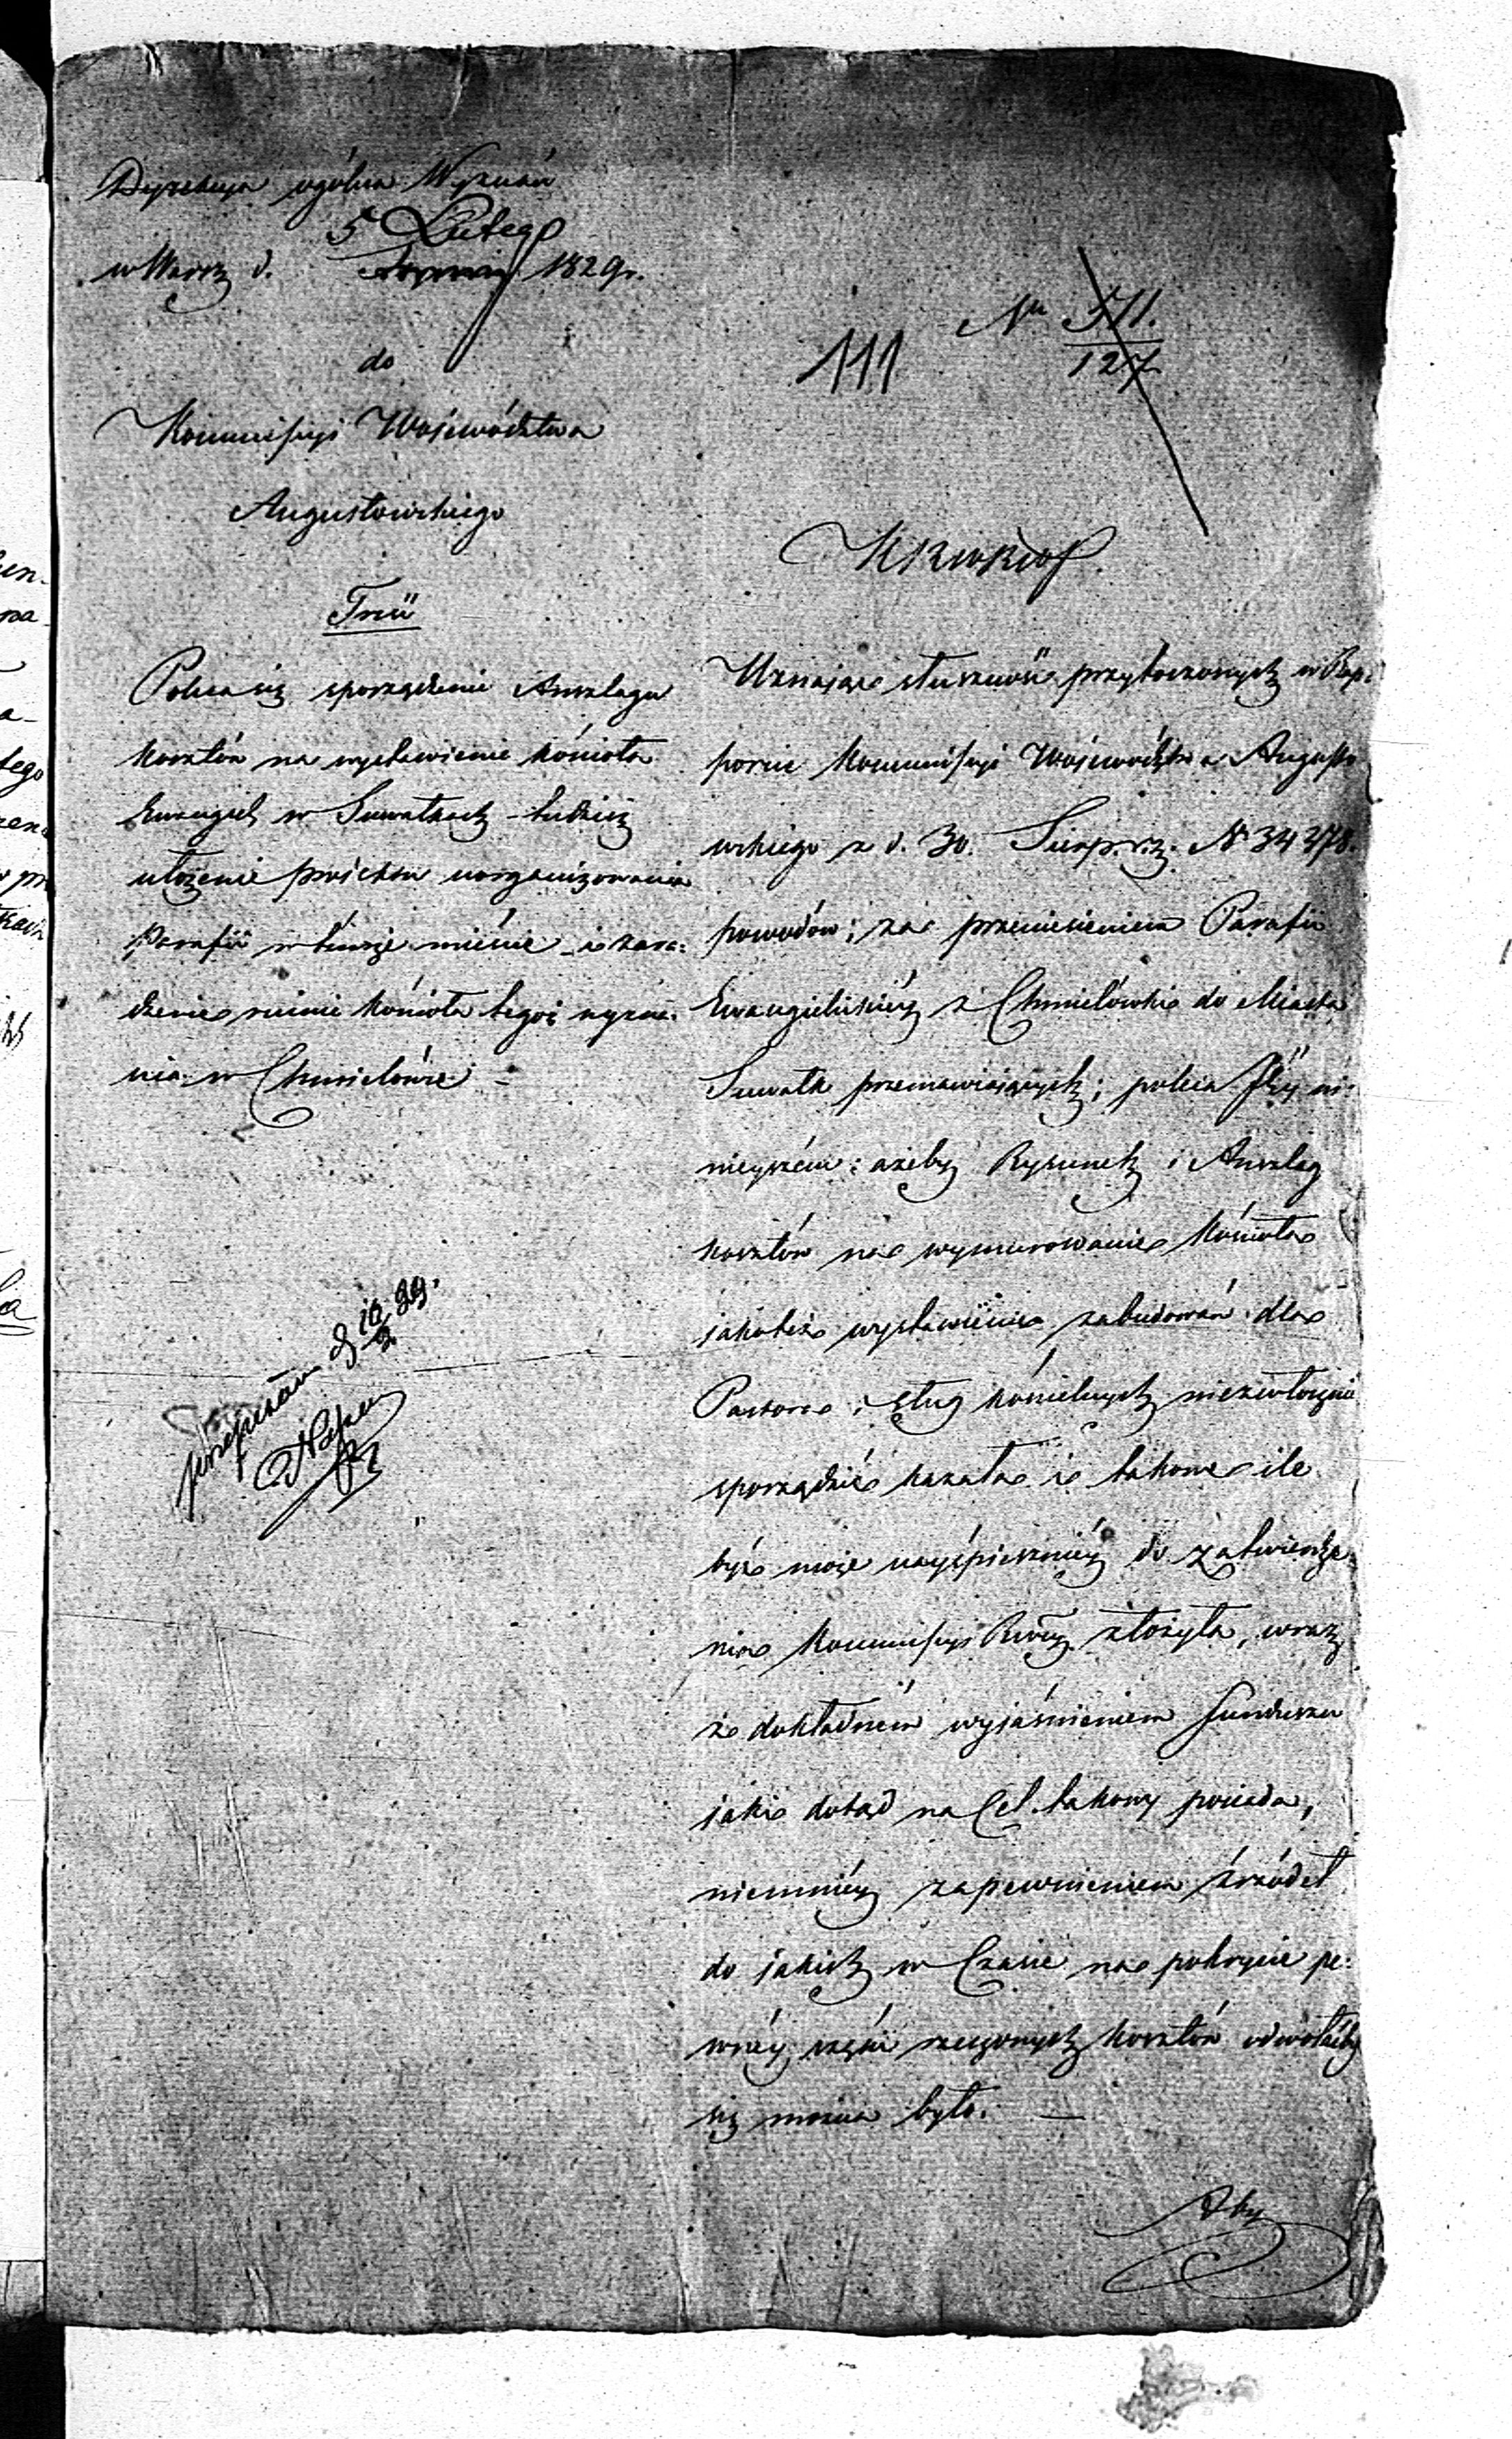 Dyrekcya ogólna Wyznań
5 Lutego
w Warsz d. 1829 r.
do
Kommissyi Województwa
Augustowskiego
Nr 511.
127
111
KRWRiOP.
Treść
Poleca się sporządzenie Anszlagu
kosztów na wystawienie kościoła
Ewangiel w Suwałkach tudzież
ułożenie projektu uorganizowania
Parafii w temże mieście i zara:
dzenie ruinie kościoła tegoż wyzna:
nia w Chmielówce
przepisałem d 10/2 29.
Uznając słuszność przytoczonych w Rap:
porcie Kommissyi Województwa Augusto
wskiego z d. 30. Sierp. r. z. N 34378.
powodów; za przeniesieniem Parafii
Ewangielickiey z Chmielówki do Miasta
Suwałk przemawiających; poleca Jéy ni:
nieyszém; ażeby Rysunek i Anszlag
kosztów na wymurowanie kościoła
jakoteż wystawienie zabudowań dla
Pastora i sług kościelnych niezwłocznie
sporządzić kazała i takowe ile
być może nayśpieszniéy do zatwierdze
nia Kommissyi Rwéy złożyła, wraz
z dokładném wyjaśnieniem funduszu
jaki dotąd na Cel takowy posiada,
niemniéy zapewnieniem źrzódeł
do jakich w Czasie na pokrycie pe:
wnéy części rzeczonych kosztów odwołaćby
się można było. —
Aby